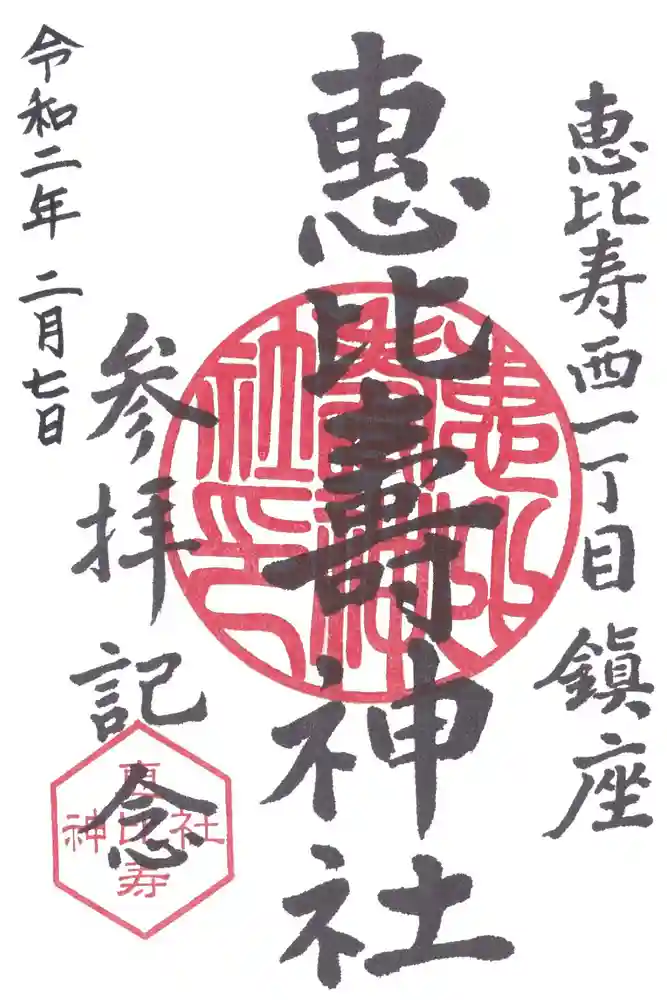 恵比寿西一丁目鎮座
惠比壽神社
参拝記念
令和二年 二月七日
恵比寿
神社